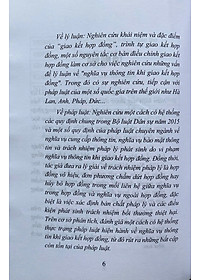 Về lý luận: Nghiên cứu khái niệm và đặc điểm
của "giao kết hợp đồng", trình tự giao kết hợp
đồng, một số nguyên tắc cơ bản điều chỉnh giao kết
hợp đồng làm cơ sở cho việc nghiên cứu những vấn
đề lý luận về "nghĩa vụ thông tin khi giao kết hợp
đồng". Trong đó có sự nghiên cứu, tiếp cận với
pháp luật của một số quốc gia trên thế giới như Hà
Lan, Anh, Pháp, Đức...
Về pháp luật: Nghiên cứu một cách có hệ thống
các quy định chung trong Bộ luật Dân sự năm 2015
và một số quy định của pháp luật chuyên ngành về
nghĩa vụ cung cấp thông tin, nghĩa vụ bảo mật thông
tin và trách nhiệm pháp lý phát sinh do vi phạm
nghĩa vụ thông tin khi giao kết hợp đồng. Đồng thời,
tác giả đưa ra lý giải về trách nhiệm pháp lý là hợp
đồng vô hiệu, đơn phương chấm dứt hợp đồng hay
hủy bỏ hợp đồng trong mối liên hệ giữa nghĩa vụ
trong hợp đồng và nghĩa vụ ngoài hợp đồng, đặc
biệt là việc xác định bản chất pháp lý và các điều
kiện phát sinh trách nhiệm bồi thường thiệt hại.
Trên cơ sở phân tích, đánh giá một cách có hệ thống
thực trạng pháp luật hiện hành về nghĩa vụ thông tin
khi giao kết hợp đồng, từ đó rút ra những bất cập
còn tồn tại của pháp luật.
6